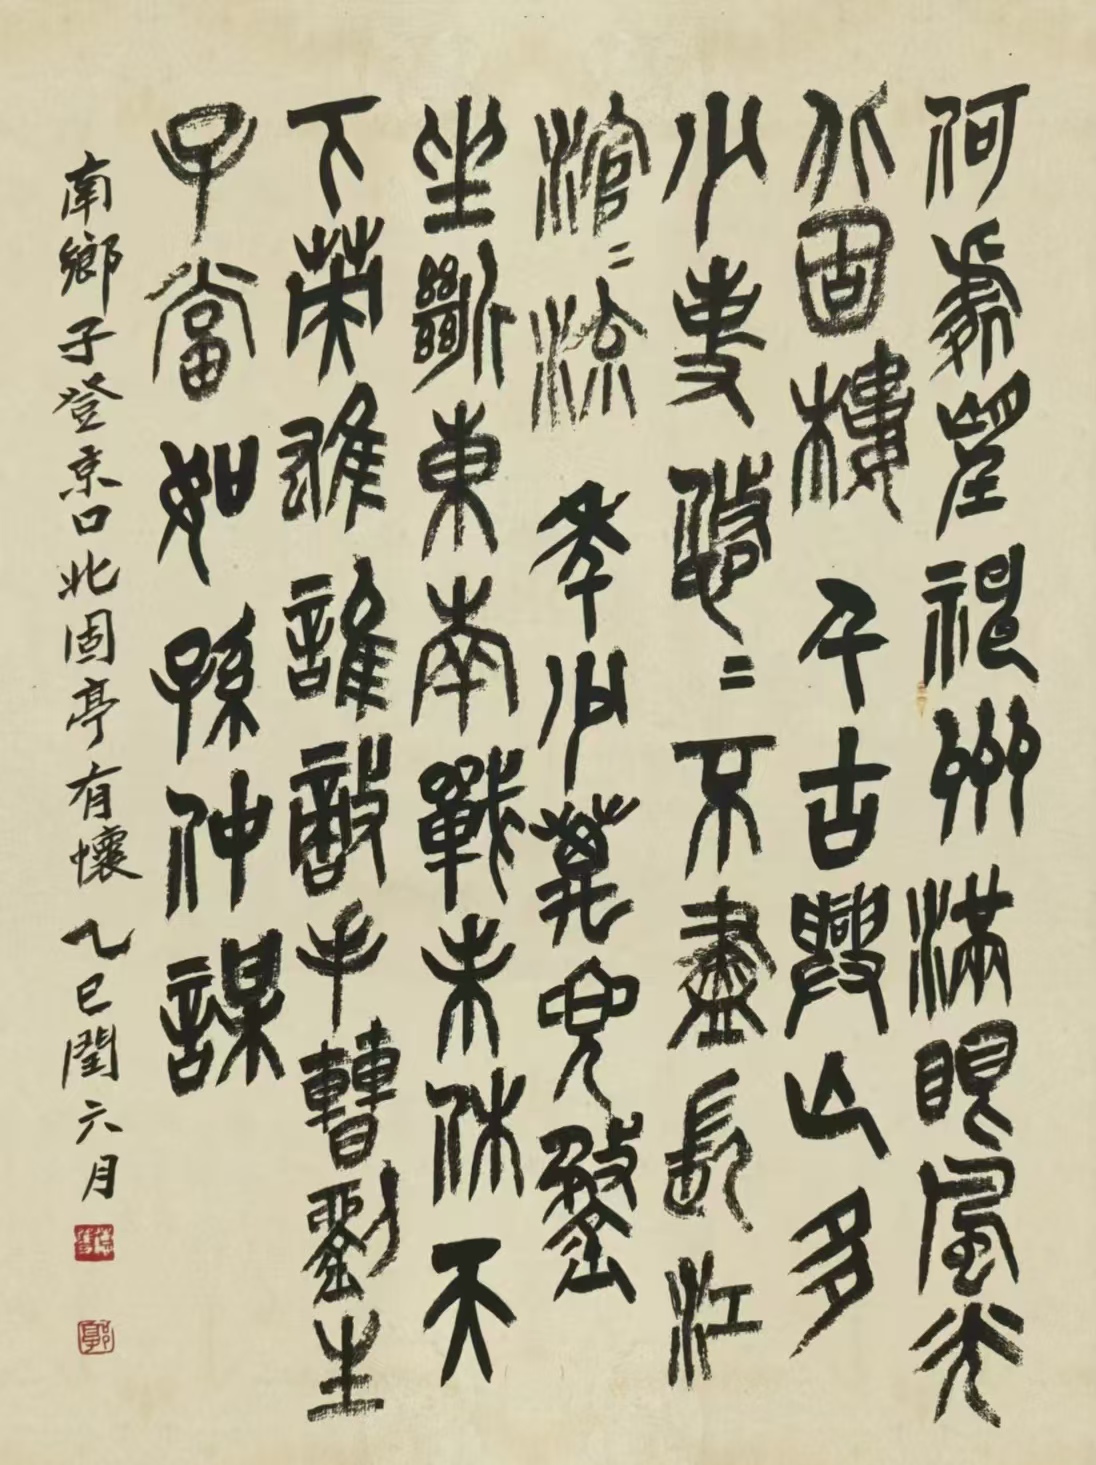 何處望神州滿眼風光
北固樓千古興亡多
少事悠〻不盡長江
滾〻流年少萬兜鍪
坐斷東南戰未休天
下英雄誰敵手曹劉生
子當如孫仲謀
南鄉子登京口北固亭有懷乙巳閏六月